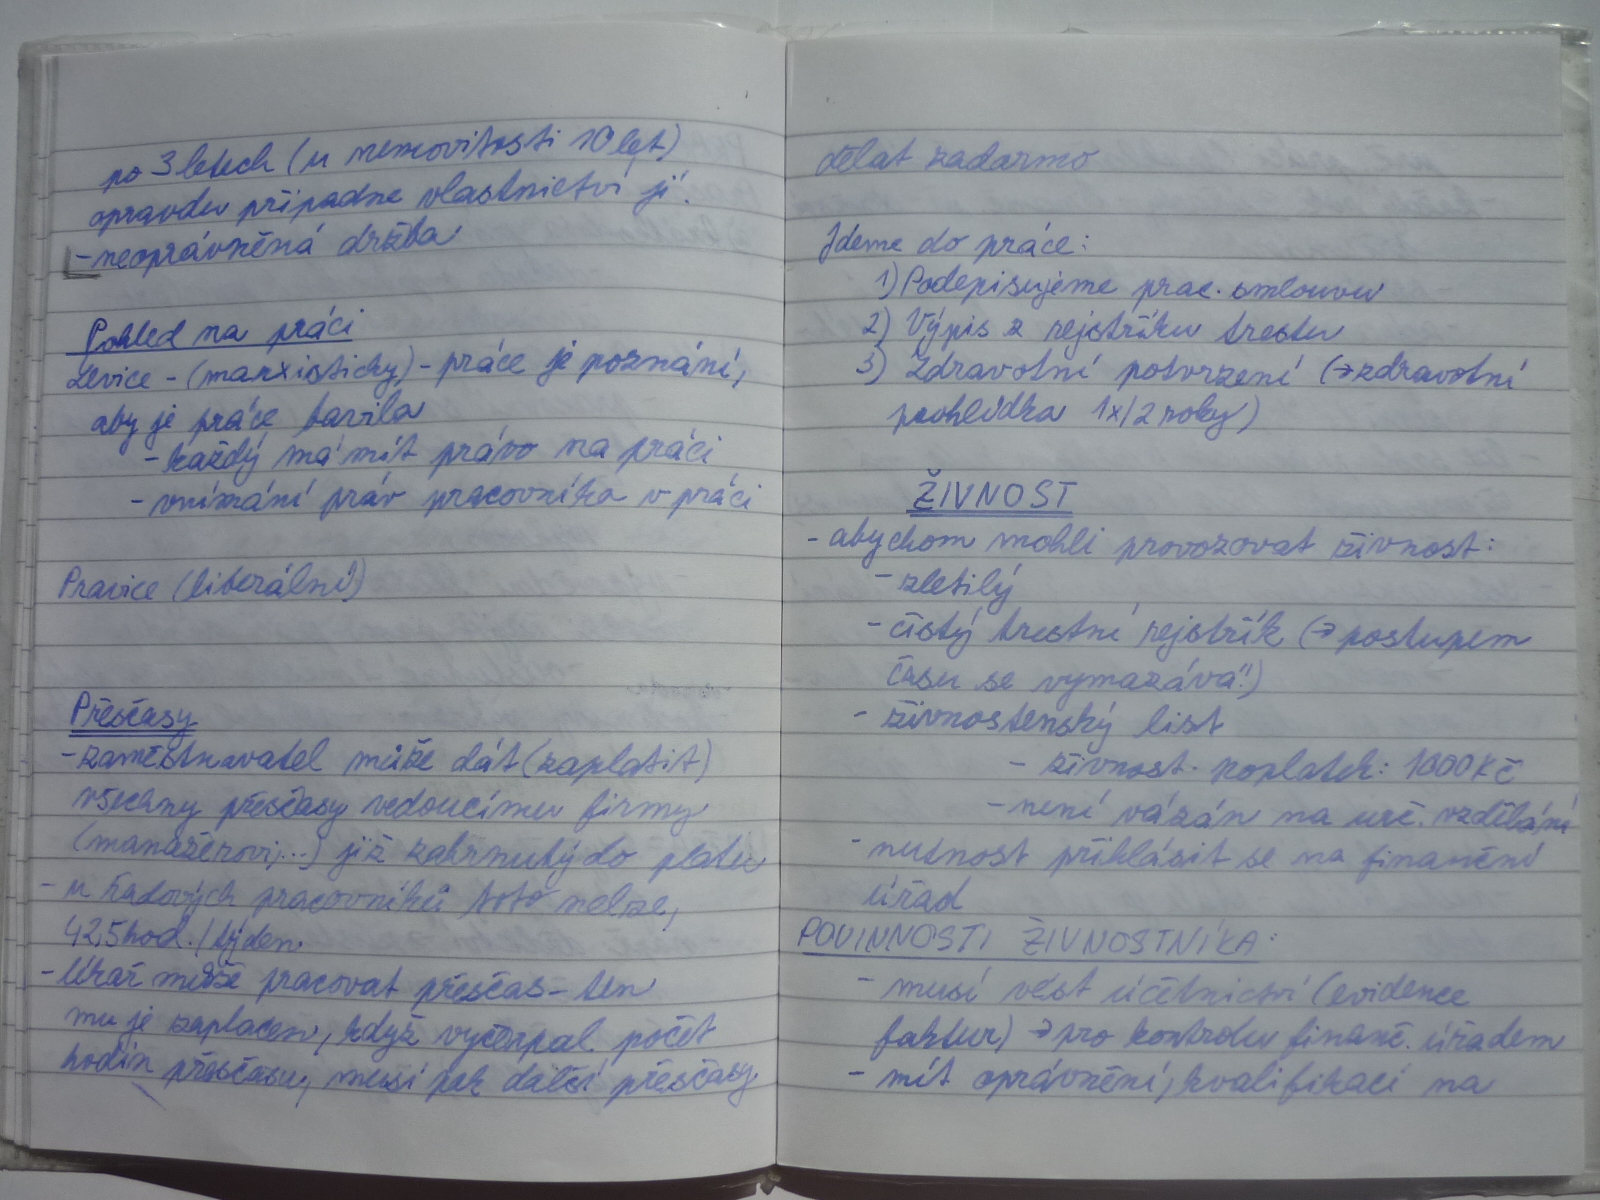 po 3 letech (u nemovitosti 10 let)
opravdu připadne vlastnictví jí.
- neoprávněná držba
Pohled na práci
Levice - (marxisticky) - práce je poznání,
aby je práce bavila
- každý má mít právo na práci
- vnímání práv pracovníka v práci
Pravice (liberální)
Přesčasy
- zaměstnavatel může dát (zaplatit)
všechny přesčasy vedoucímu firmy
(manažerovi,...) již zahrnutý do platu
- u řadových pracovníků toto nelze,
42,5 hod. / týden
- lékař může pracovat přesčas - ten
mu je zaplacen, když vyčerpal počet
hodin přesčasu, musí pak další přesčasy
dělat zadarmo
Jdeme do práce:
1) Podepisujeme prac. smlouvu
2) Výpis z rejstříku trestu
3) Zdravotní potvrzení (→ zdravotní
prohlídka 1x/2 roky)
ŽIVNOST
- abychom mohli provozovat živnost:
- zletilý
- čistý trestní rejstřík (→ postupem
času se vymazává!!)
- živnostenský list
- živnost. poplatek: 1000 Kč
- není vázán na urč. vzdělání
- nutnost přihlásit se na finanční
úřad
POVINNOSTI ŽIVNOSTNÍKA:
- musí vést účetnictví (evidence
faktur) → pro kontrolu finanč. úřadem
- mít oprávnění, kvalifikaci na